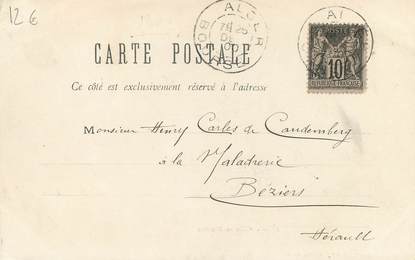 12 €
ALGER
BOURSE
CARTE POSTALE
POSTE
10
RÉPUBLIQUE FRANÇAISE
Ce côté est exclusivement réservé à l'adresse
Monsieur Henry Carles de Caudemberg
à la Maladrerie
Béziers
Hérault